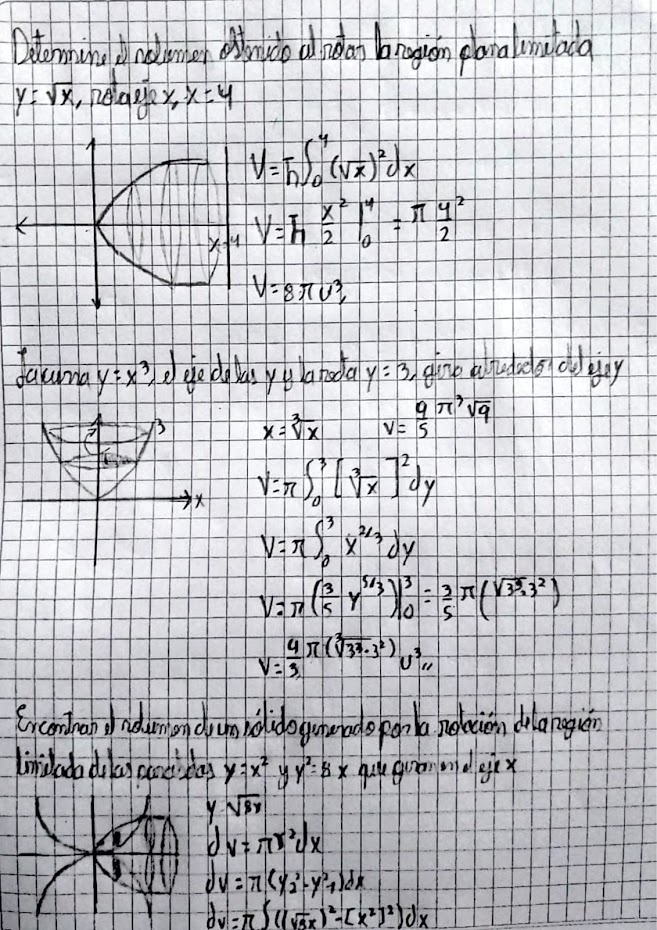 Determine el volumen obtenido al rotar la región plana limitada
y = √x, rota eje x, x = 4
V = π∫₀⁴ (√x)² dx
V = π x²/2 |₀⁴ = π 4²/2
x=4
V = 8π u³
La curva y = x³, el eje de las y y la recta y = 3, giro alrededor del eje y
3
x
x = ∛x
V = 9/5 π ³√9
V = π ∫₀³ [∛x]² dy
V = π ∫₀³ x^(2/3) dy
V = π (3/5 y^(5/3)) |₀³ = 3/5 π (√3³·3²)
V = 9/5 π (∛3³·3²) u³
Encontrar el volumen de un sólido generado por la rotación de la región
limitada de las parabolas y = x² y y² = 8x que giran en el eje x
y √8x
dv = πr² dx
dv = π (y₂² - y²₁) dx
dv = π∫((√8x)² - [x²]²) dx